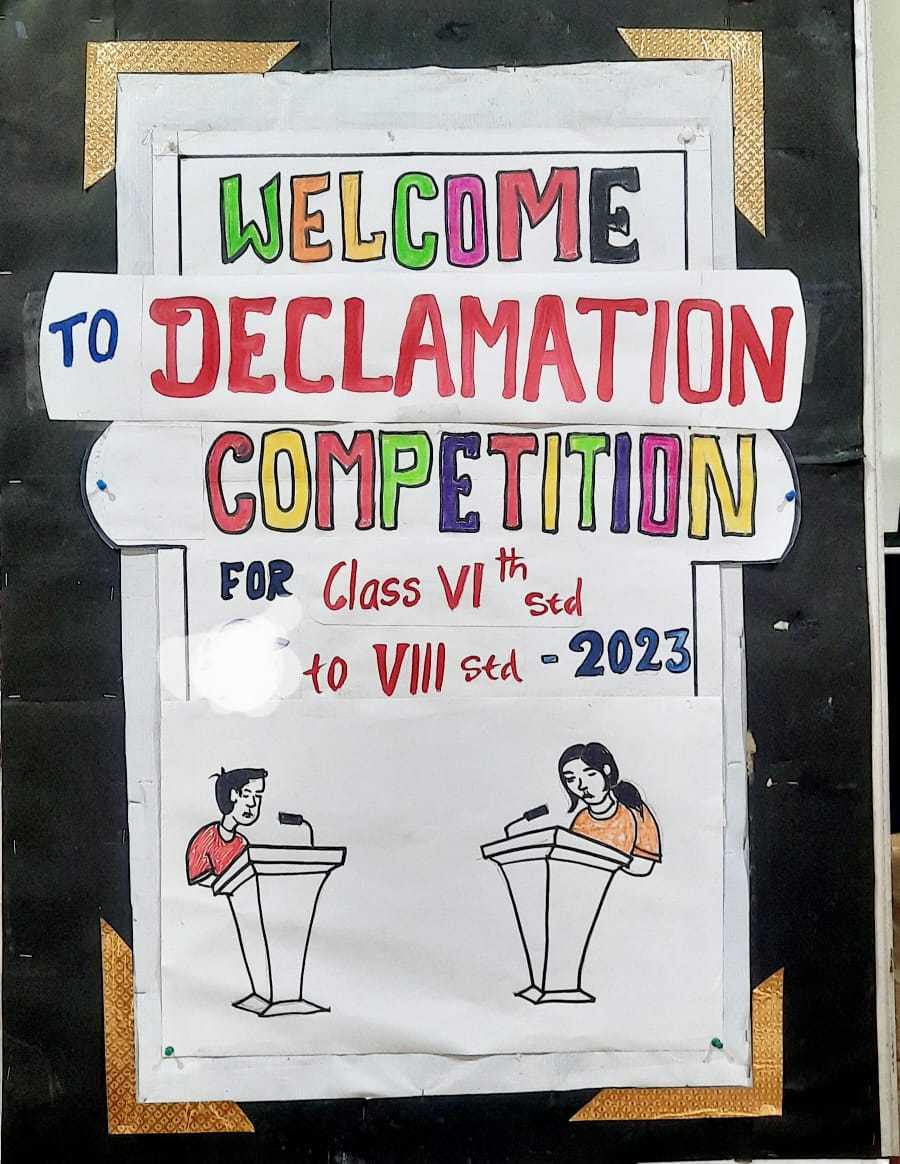 WELCOME
TO DECLAMATION
COMPETITION
FOR Class VIth std
to VIII std - 2023